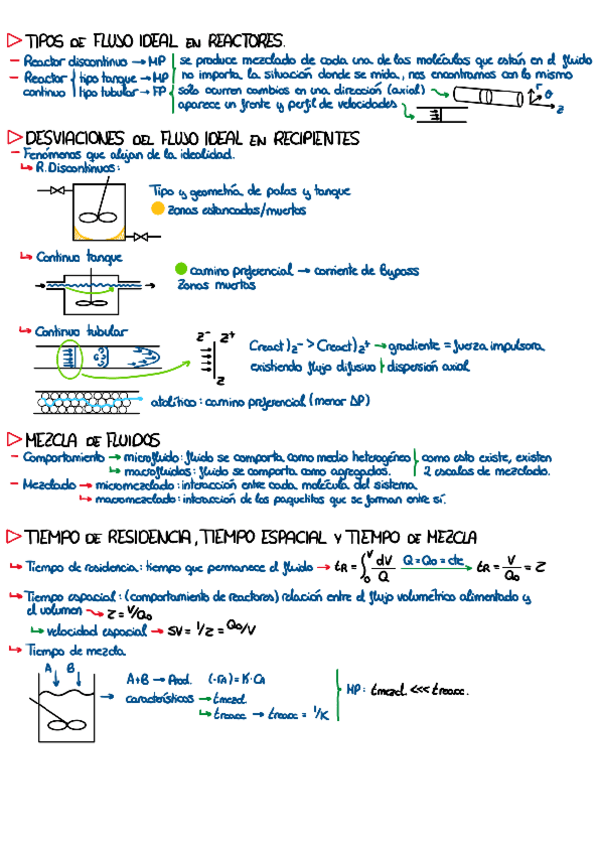 ▷ TIPOS DE FLUJO IDEAL EN REACTORES.
– Reactor discontinuo → MP | se produce mezclado de cada una de las moléculas que están en el fluido
– Reactor continuo { tipo tanque → MP | no importa la situación donde se mida, nos encontramos con lo mismo
tipo tubular → FP { solo ocurren cambios en una dirección (axial)
aparece un frente y perfil de velocidades
r θ z
▷ DESVIACIONES DEL FLUJO IDEAL EN RECIPIENTES
– Fenómenos que alejan de la idealidad.
↳ R. Discontinuos:
Tipo y geometría de palas y tanque
zonas estancadas/muertas
↳ Continuo tanque
camino preferencial → corriente de Bypass
Zonas muertas
↳ Continuo tubular
z⁻ z⁺
z
Creact)z⁻ > Creact)z⁺ → gradiente = fuerza impulsora
existiendo flujo difusivo | dispersión axial
catalítico: camino preferencial (menor ΔP)
▷ MEZCLA DE FLUIDOS
– Comportamiento → microfluido: fluido se comporta como medio heterogéneo } como esto existe, existen
↳ macrofluidos: fluido se comporta como agregados. 2 escalas de mezclado.
– Mezclado → micromezclado: interacción entre cada molécula del sistema.
↳ macromezclado: interacción de los paquetitos que se forman entre sí.
▷ TIEMPO DE RESIDENCIA, TIEMPO ESPACIAL Y TIEMPO DE MEZCLA
↳ Tiempo de residencia: tiempo que permanece el fluido → tR = ∫₀ⱽ dV/Q Q = Q₀ = cte → tR = V/Q₀ = Z
↳ Tiempo espacial: (comportamiento de reactores) relación entre el flujo volumétrico alimentado y
el volumen → Z = V/Q₀
↳ velocidad espacial → SV = 1/Z = Q₀/V
↳ Tiempo de mezcla
A B
A+B → Prod. (-rA) = K·CA
características → tmezcl.
↳ treacc → treacc = 1/K
MP: tmezcl. <<< treacc.